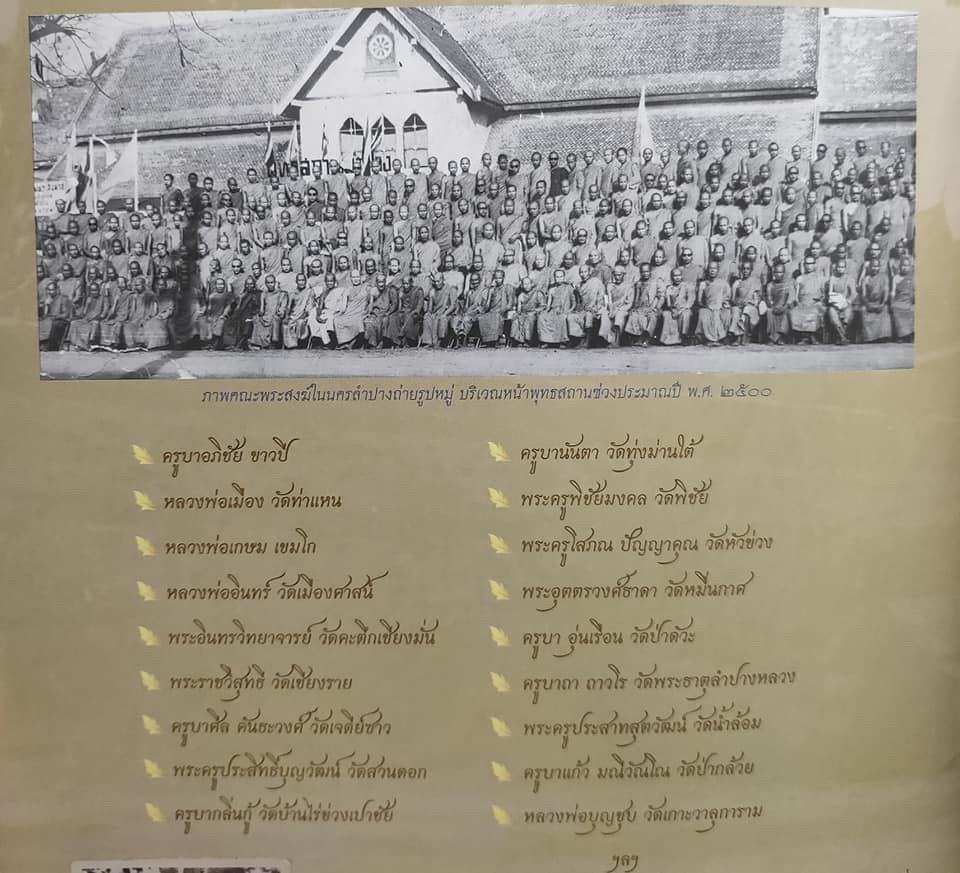 ภาพคณะพระสงฆ์ในนครลำปางถ่ายรูปหมู่ บริเวณหน้าพุทธสถานช่วงประมาณปี พ.ศ. ๒๕๐๐
ครูบาอภิชัย ขาวปี
หลวงพ่อเมือง วัดท่าแหน
หลวงพ่อเกษม เขมโก
หลวงพ่ออินทร์ วัดเมืองศาสน์
พระอินทรวิทยาจารย์ วัดคะตึกเชียงมั่น
พระราชวิสุทธี วัดเชียงราย
ครูบาศีล คันธะวงศ์ วัดเจดีย์ซาว
พระครูประสิทธิ์บุญวัฒน์ วัดสวนดอก
ครูบากลิ่นกู้ วัดบ้านไร่ข่วงเปาชัย
ครูบานันตา วัดทุ่งม่านใต้
พระครูพิชัยมงคล วัดพิชัย
พระครูโสภณ ปัญญาคุณ วัดหัวข่วง
พระอุตตรวงศ์ธาดา วัดหมื่นกาศ
ครูบา อุ่นเรือน วัดป่าตัวะ
ครูบาถา ถาวโร วัดพระธาตุลำปางหลวง
พระครูประสาทสุตวัฒน์ วัดน้ำล้อม
ครูบาแก้ว มณีวัณโณ วัดป่ากล้วย
หลวงพ่อบุญชุบ วัดเกาะวาลุการาม
ฯลฯ